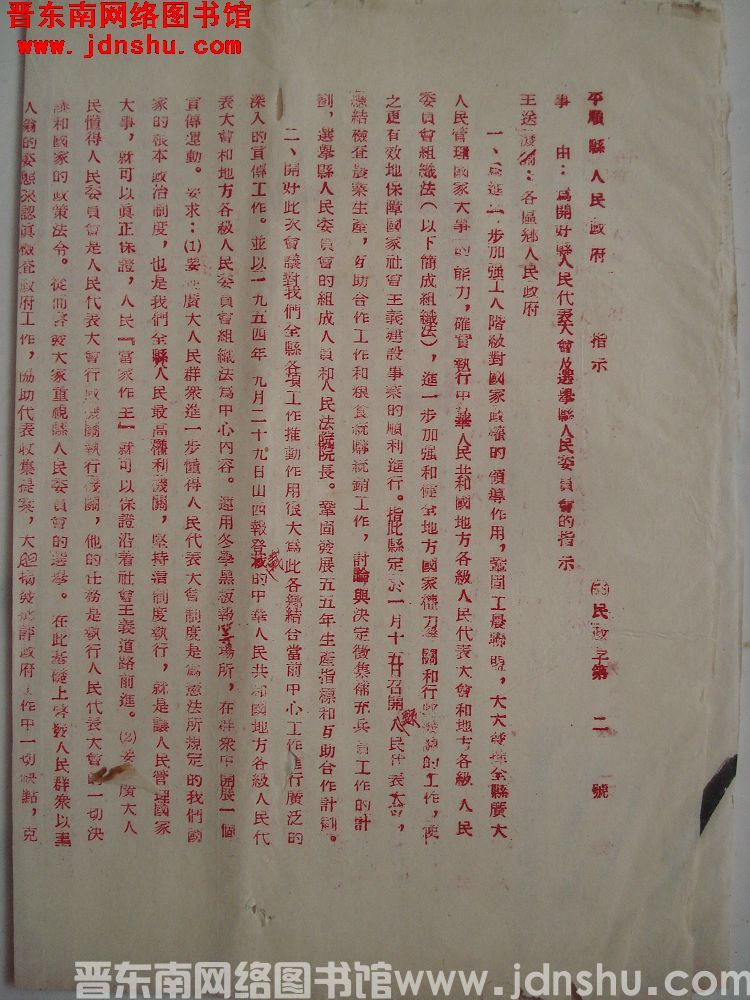 晋东南网络图书馆
www.jdnshu.com
平順縣人民政府 指示 民政字第二號
事 由:爲開好縣人民代表大會及選舉縣人民委員會的指示
主送機關:各區鄉人民政府
一、爲進一步加强工人階級對國家政權的領導作用,鞏固工農聯盟,大大發揮全縣廣大
人民管理國家大事的能力,確實執行中華人民共和國地方各級人民代表大會和地方各級人民
委員會組織法(以下簡成組織法),進一步加强和健全地方國家權力機關和行政機關的工作,使
之更有效地保障國家社會主義建設事業的順利進行。指此縣定於一月十五日召開人民代表大會,
總結檢查農業生產,互助合作工作和粮食統購統銷工作,討論與決定徵集補充兵員工作的計
劃,選舉縣人民委員會的組成人員和人民法院院長。鞏固發展五五年生產指標和互助合作計劃。
二、開好此次會議對我們全縣各項工作推動作用很大爲此各鄉結合當前中心工作進行廣泛的
深入的宣傳工作。並以一九五四年九月二十九日山西報登載的中華人民共和國地方各級人民代
表大會和地方各級人民委員會組織法爲中心內容。運用冬學黑板報等塲所,在群衆中開展一個
宣傳運動。要求:(1)要使廣大人民群衆進一步懂得人民代表大會制度是爲憲法所規定的我們國
家的根本政治制度,也是我們全縣人民最高權利機關,堅持這制度執行,就是讓人民管理國家
大事,就可以眞正保證,人民『當家作主』就可以保證沿着社會主義道路前進。(2)要使廣大人
民懂得人民委員會是人民代表大會行政機關執行機關,他的任務是執行人民代表大會的一切決
議和國家的政策法令。從而啓發大家重視縣人民委員會的選舉。在此基礎上啓發人民群衆以主
人翁的姿態來認眞檢查政府工作,協助代表收集提案,大胆揭發批評政府工作中一切缺點,克
晋东南网络图书馆www.jdnshu.com